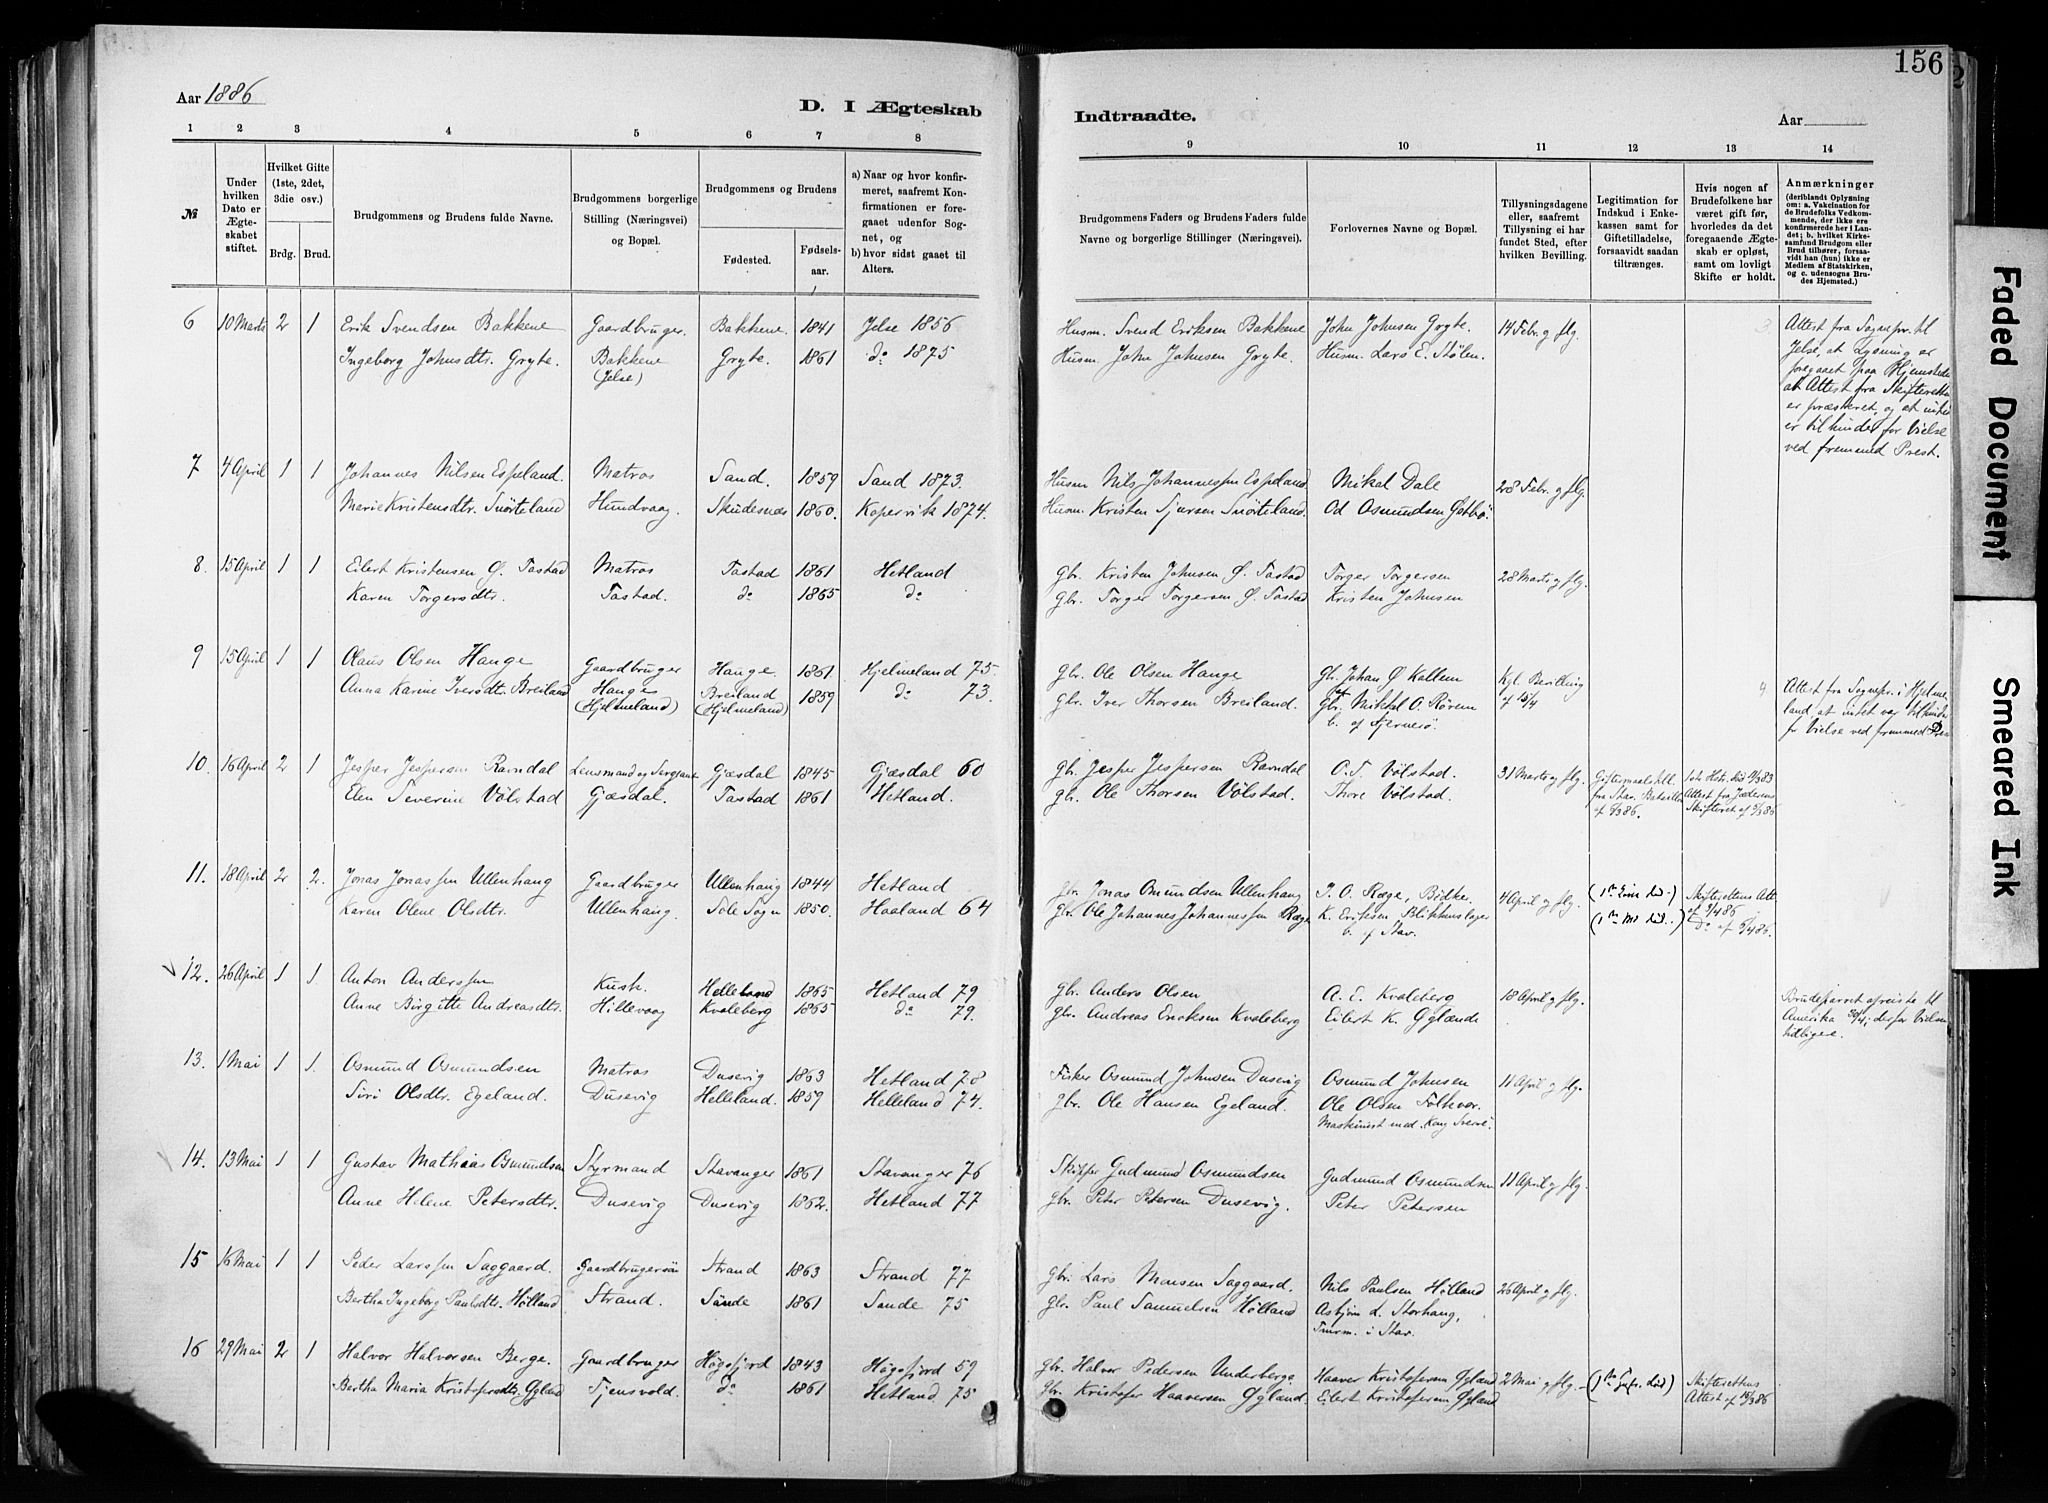 156
Aar 1886
D. I Ægteskab
Indtraadte.
Aar
1 2 3 4 5 6 7 8
9 10 11 12 13 14
№
Under hvilken Dato er Ægteskabet stiftet.
Hvilket Gifte (1ste, 2det, 3die osv.)
Brdg. Brud.
Brudgommens og Brudens fulde Navne.
Brudgommens borgerlige Stilling (Næringsvei) og Bopæl.
Brudgommens og Brudens
Fødested.
Fødsels-aar.
a) Naar og hvor konfirmeret, saafremt Konfirmationen er foregaaet udenfor Sognet, og
b) hvor sidst gaaet til Alters.
Brudgommens Faders og Brudens Faders fulde Navne og borgerlige Stillinger (Næringsvei).
Forlovernes Navne og Bopæl.
Tillysningsdagene eller, saafremt Tillysning ei har fundet Sted, efter hvilken Bevilling.
Legitimation for Indskud i Enkekassen samt for Giftetilladelse, forsaavidt saadan tiltrænges.
Hvis nogen af Brudefolkene har været gift før, hvorledes da det foregaaende Ægteskab er opløst, samt om lovligt Skifte er holdt.
Anmærkninger (deriblandt Oplysning om: a. Vakcination for de Brudefolks Vedkommende, der ikke ere konfirmerede her i Landet; b. hvilket Kirkesamfund Brudgom eller Brud tilhører, forsaavidt han (hun) ikke er Medlem af Statskirken, og c. udensogns Brudes Hjemsted.)
6 10 Marts 2 1 Erik Svendsen Bakkene Gaardbruger. Bakkene. 1841 Jelse 1856 Husm. Svend Eriksen Bakkene John Johnsen Gryte. 14 Febr. og flg.
Ingeborg Johnsdtr. Gryte. Bakkene (Jelse) Gryte. 1861 do 1875 Husm. John Johnsen Gryte. Husm. Lars E. Stølen.
Attest fra Sognepr. til
Jelse, at Lysning er
foregaaet paa Hjemstedet
at Attest fra Skifteretten
er præsteret, og at intet
er til hinder for Vielse
ved fremmed Prest.
7 4 April 1 1 Johannes Nilsen Espeland. Matros Sand. 1859 Sand 1873. Husm Nils Johannessen Espeland Mikal Dale 28 Febr. og flg.
Marie Kristensdtr. Snørteland Hundvaag Skudesnæs 1860. Kopervik 1874. Husm. Kristen Sjursen Snørteland. Od Osmundsen
8. 15 April 1 1 Eilert Kristensen Ø. Tastad Matros Tastad 1861 Hetland Gbr. Kristen Johnsen Ø. Tastad Torger Torgersen 28 Marts og flg.
Karen Torgersdtr. Tastad. do 1865 do Gbr. Torger Torgersen Ø. Tastad Kristen Johnsen
9 15 April 1 1 Olaus Olsen Hauge Gaardbruger Hauge. 1861 Hjelmeland 75. Gbr. Ole Olsen Hauge Gbr. Johan Ø Kallem Kgl. Bevilling
Anna Karine Iversdtr. Breiland Hauge (Hjelmeland) Breiland (Hjelmeland) 1859 do 73. Gbr. Iver Thorsen Breiland. Gbr. Mikkel O. Rörem af 15/4
b. af Fjernerö.
Attest fra Sognepr. i Hjelme-
land, at intet var til hinder
for Vielse ved fremmed Prest
10. 16 April 2 1 Jesper Jespersen Ravndal Lensmand og Sergeant Gjæsdal 1845 Gjæsdal 60 Gbr. Jesper Jespersen Ravndal O. T. Völstad. 31 Marts og flg.
Elen Severine Völstad Gjæsdal. Tastad 1861 Hetland. Gbr. Ole Thorsen Völstad. Thore Völstad.
Giftermaalstill. fra Stav. Bataillon af 6/3 86.
Attest fra Jæderens Skifteret af 5/3 86
11. 18 April 2 2. Jonas Jonassen Ullenhaug Gaardbruger Ullenhaug 1844 Hetland Gbr. Jonas Omundsen Ullenhaug T. O. Ræge, Bödker. 4 April og flg.
Karen Olene Olsdtr. Ullenhaug. Sole Sogn 1850. Haaland 64 Gbr. Ole Johannes Johannessen Ræge K. Eriksen Blikkenslager b. af Stav.
Skifterettens Att. af 3/4 86
do af 3/4 86.
12. 26 April 1 1 Anton Anderssen Kusk. Helleland 1865 Hetland 79 Gbr. Anders Olsen A. E. Kvaleberg 18 April og flg.
Anne Birgitte Andreasdtr. Hillevaag Kvaleberg 1865 do 79. Gbr. Andreas Eriksen Kvaleberg Eilert K. Gglænde
Brudeparret afreiste til
Amerika 30/4, derfor Vielsen
tidligere.
13. 1 Mai 1 1. Osmund Osmundsen Matros Dusevig 1863 Hetland 78 Fisker Osmund Johnsen Dusevig Osmund Johnsen 11 April og flg.
Sörö Olsdtr. Egeland. Dusevig Helleland. 1859 Helleland 74. Gbr. Ole Hansen Egeland. Ole Olsen Folkvor.
Maskinist med "Kong Sverre".
14. 13 Mai 1 1 Gustav Mathias Osmundsen Styrmand Stavanger 1861 Stavanger 76 Skipper Gudmund Osmundsen Gudmund Osmundsen 11 April og flg.
Anne Helene Petersdtr. Dusevig Dusevig 1862. Hetland 77 Gbr. Peter Petersen Dusevig. Peter Petersen
15 16 Mai 1 1 Peder Larssen Saggaard. Gaardbrugersön Strand 1863 Strand 77 Gbr. Lars Monsen Saggaard. Nils Paulsen Hölland 26 April og flg.
Bertha Ingeborg Paulsdtr. Hölland Strand. Sande 1861 Sande 75 Gbr. Paul Samuelsen Hölland Asbjörn L. Storhaug,
Tmrm. i Stav.
16 29 Mai 2 1 Halvor Halvorsen Berge. Gaardbruger Högsfjord 1843 Högsfjord 59 Gbr. Halvor Pedersen Underberge. Haaver Kristofersen Gyland 2 Mai og flg.
Bertha Maria Kristofersdtr. Gyland Tjensvold. do 1861 Hetland. 75 Gbr. Kristofer Haaversen Gyland. Eilert Kristofersen Gyland
Skifterettens
Attest af 15/3 86
Faded Document
Smeared Ink